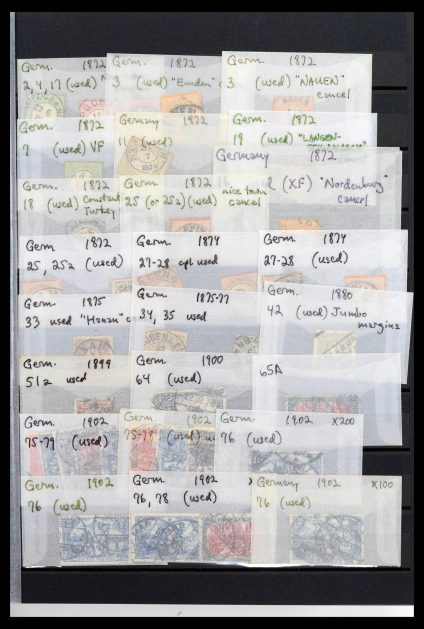 Germ. 1872
2, 4, 17 (used)
Germ. 1872
3 (used) "Emden"
Germ. 1872
3 (used) "NAUEN"
cancel
Germ. 1872
7 (used) VF
Germany 1872
11 (used)
Germ. 1872
19 (used) "LANGEN-
Germ. 1872
18 (used) Constant
Turkey
Germ. 1872
25 (or 25a) (used)
nice town
cancel
Germany 1872
(XF) "Nordenburg"
cancel
Germ 1872
25, 25a (used)
Germ. 1874
27-28 cpl used
Germ. 1874
27-28 (used)
Germ. 1875
33 used "Hanau"
Germ. 1875-77
34, 35 used
Germ. 1880
42 (used) Jumbo
margins
Germ. 1899
51a used
Germ. 1900
64 (used)
65A
Germ. 1902
75-79 (used)
Germ. 1902
75-78 (used)
Germ. 1902 x200
76 (used)
Germ. 1902
76 (used)
Germ. 1902
76, 78 (used)
Germany 1902 x100
76 (used)